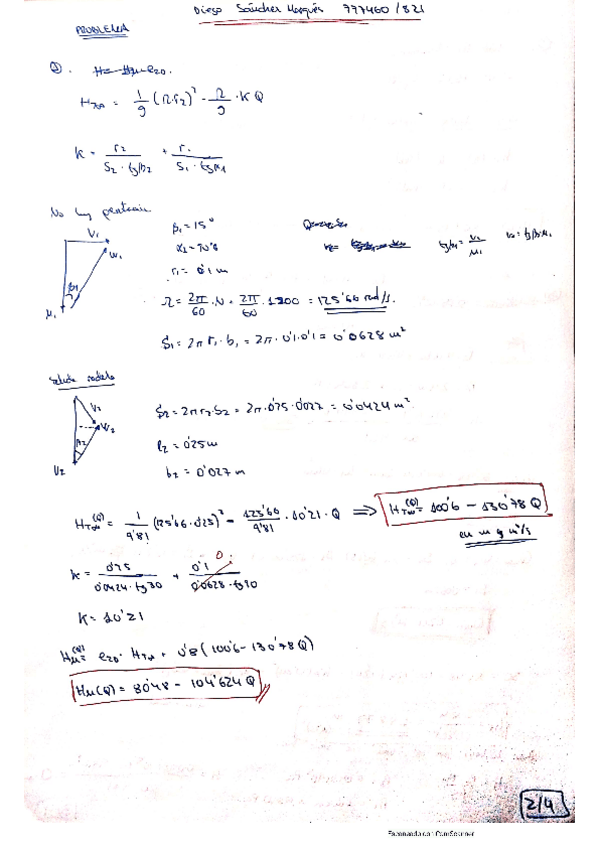 Diego Sánchez Marqués 777460/821
PROBLEMA
H∞ = 1/g (Ω·r2)² - Ω/g · K Q
K = r2 / (S2 · tgβ2) + r1 / (S1 · tgα1)
No hay
V1
W1
β1
μ1
β1 = 15°
α1 = 90°
r1 = 0'1 m
tgβ1 = V1/μ1
Ω = 2π/60 · N = 2π/60 · 1200 = 125'66 rad/s.
S1 = 2π r1 · b1 = 2π · 0'1 · 0'1 = 0'0628 m²
Salida rodete
V2
W2
β2
U2
S2 = 2π r2 · S2 = 2π · 0'25 · 0'027 = 0'0424 m²
R2 = 0'25 m
b2 = 0'027 m
HT∞(Q) = 1/9'81 (125'66 · 0'25)² - 125'66/9'81 · 10'21 · Q ⇒ HT∞(Q) = 100'6 - 130'78 Q
en m y m³/s
K = 0'25 / (0'0424 · tg30) + 0'1 / (0'0628 · tg90) 0
K = 10'21
Hu(Q) = e20 · HT∞ = 0'8 (100'6 - 130'78 Q)
Hu(Q) = 80'48 - 104'624 Q
2/4
Escaneado con CamScanner